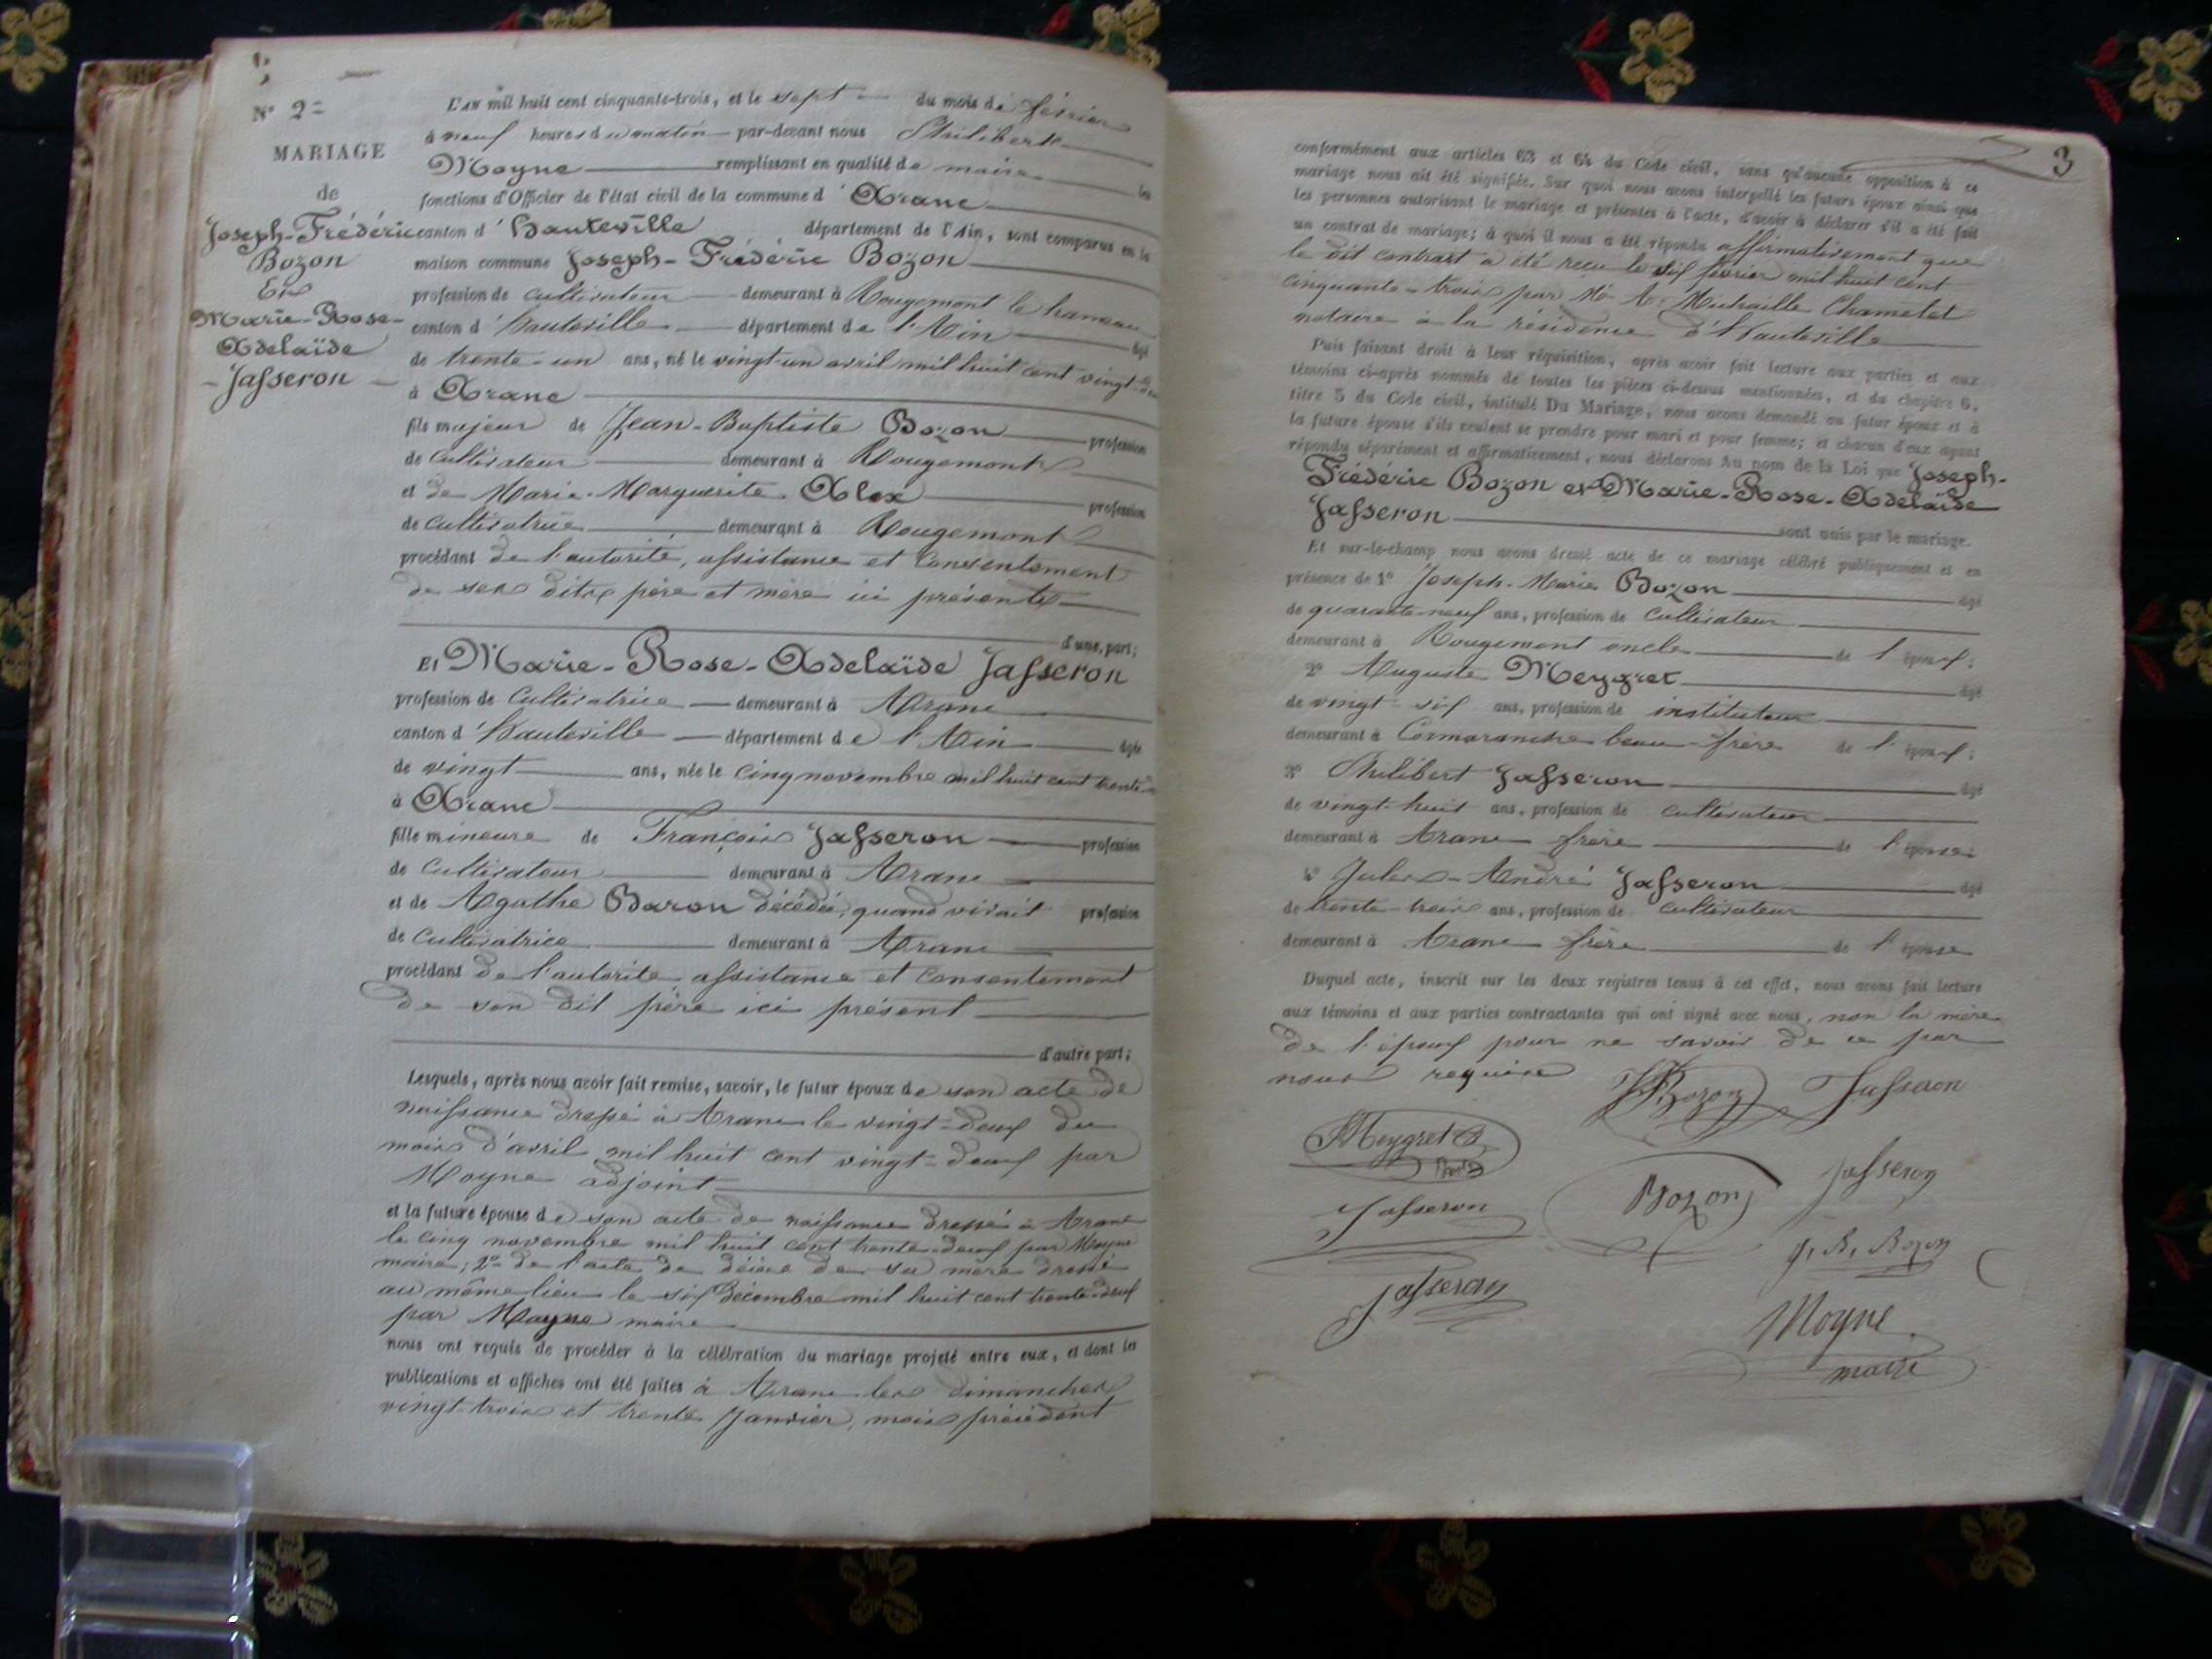 N° 2=
MARIAGE
de
Joseph-Frédéric
Bozon
Et
Marie-Rose-
Adelaïde
- Jasseron -
L'an mil huit cent cinquante-trois, et le sept du mois de février
à neuf heures du matin par-devant nous Philibert
Moyne remplissant en qualité de maire les
fonctions d'Officier de l'état civil de la commune d'Aranc
canton d'hauteville département de l'Ain, sont comparus en la
maison commune Joseph-Frédéric Bozon
profession de cultivateur demeurant à Rougemont le hameau
canton d'hauteville département de l'Ain âgé
de trente-un ans, né le vingt-un avril mil huit cent vingt-
à Aranc
fils majeur de Jean-Baptiste Bozon profession
de cultivateur demeurant à Rougemont
et de Marie-Marguerite Alex profession
de cultivatrice demeurant à Rougemont
procédant de l'autorité, assistance et consentement
de ses dits père et mère ici présents
d'une part;
Et Marie-Rose-Adelaïde Jasseron
profession de cultivatrice demeurant à Aranc
canton d'hauteville département de l'Ain âgée
de vingt ans, née le cinq novembre mil huit cent trente-
à Aranc
fille mineure de François Jasseron profession
de cultivateur demeurant à Aranc
et de Agathe Baron décédée, quand vivait profession
de cultivatrice demeurant à Aranc
procédant de l'autorité assistance et consentement
de son dit père ici présent
d'autre part;
Lesquels, après nous avoir fait remise, savoir, le futur époux de son acte de
naissance dressé à Aranc le vingt-deux du
mois d'avril mil huit cent vingt-deux par
Moyne adjoint
et la future épouse de son acte de naissance dressé à Aranc
le cinq novembre mil huit cent trente-deux par Moyne
maire; 2° de l'acte de décès de sa mère dressé
au même lieu le six décembre mil huit cent trente-deux
par Moyne maire
nous ont requis de procéder à la célébration du mariage projeté entre eux, et dont les
publications et affiches ont été faites à Aranc les dimanches
vingt-trois et trente janvier, mois précédent
3
conformément aux articles 63 et 64 du Code civil, sans qu'aucune opposition à ce
mariage nous ait été signifiée. Sur quoi nous avons interpellé les futurs époux ainsi que
les personnes autorisant le mariage et présentes à l'acte, d'avoir à déclarer s'il a été fait
un contrat de mariage; à quoi il nous a été répondu affirmativement que
le dit contrat a été reçu le six février mil huit cent
cinquante-trois par Mé Chametet
notaire à la résidence d'hauteville
Puis faisant droit à leur réquisition, après avoir fait lecture aux parties et aux
témoins ci-après nommés de toutes les pièces ci-dessus mentionnées, et du chapitre 6,
titre 5 du Code civil, intitulé Du Mariage, nous avons demandé au futur époux et à
la future épouse s'ils veulent se prendre pour mari et pour femme; et chacun d'eux ayant
répondu séparément et affirmativement, nous déclarons Au nom de la Loi que Joseph-
Frédéric Bozon et Marie-Rose-Adelaïde
Jasseron sont unis par le mariage.
Et sur-le-champ nous avons dressé acte de ce mariage célébré publiquement et en
présence de 1° Joseph-Marie Bozon âgé
de quarante-neuf ans, profession de cultivateur
demeurant à Rougemont oncle de l'époux;
2° Auguste Meygret âgé
de vingt-six ans, profession de instituteur
demeurant à Cormaranche beau-frère de l'époux;
3° Philibert Jasseron âgé
de vingt-huit ans, profession de cultivateur
demeurant à Aranc frère de l'épouse;
4° Jules-André Jasseron âgé
de trente-trois ans, profession de cultivateur
demeurant à Aranc frère de l'épouse
Duquel acte, inscrit sur les deux registres tenus à cet effet, nous avons fait lecture
aux témoins et aux parties contractantes qui ont signé avec nous, non la mère
de l'époux pour ne savoir de ce par
nous requise
Bozon Jasseron
Meygret
Jasseron
Jasseron Bozon
J, B, Bozon
Jasseron
Moyne
maire